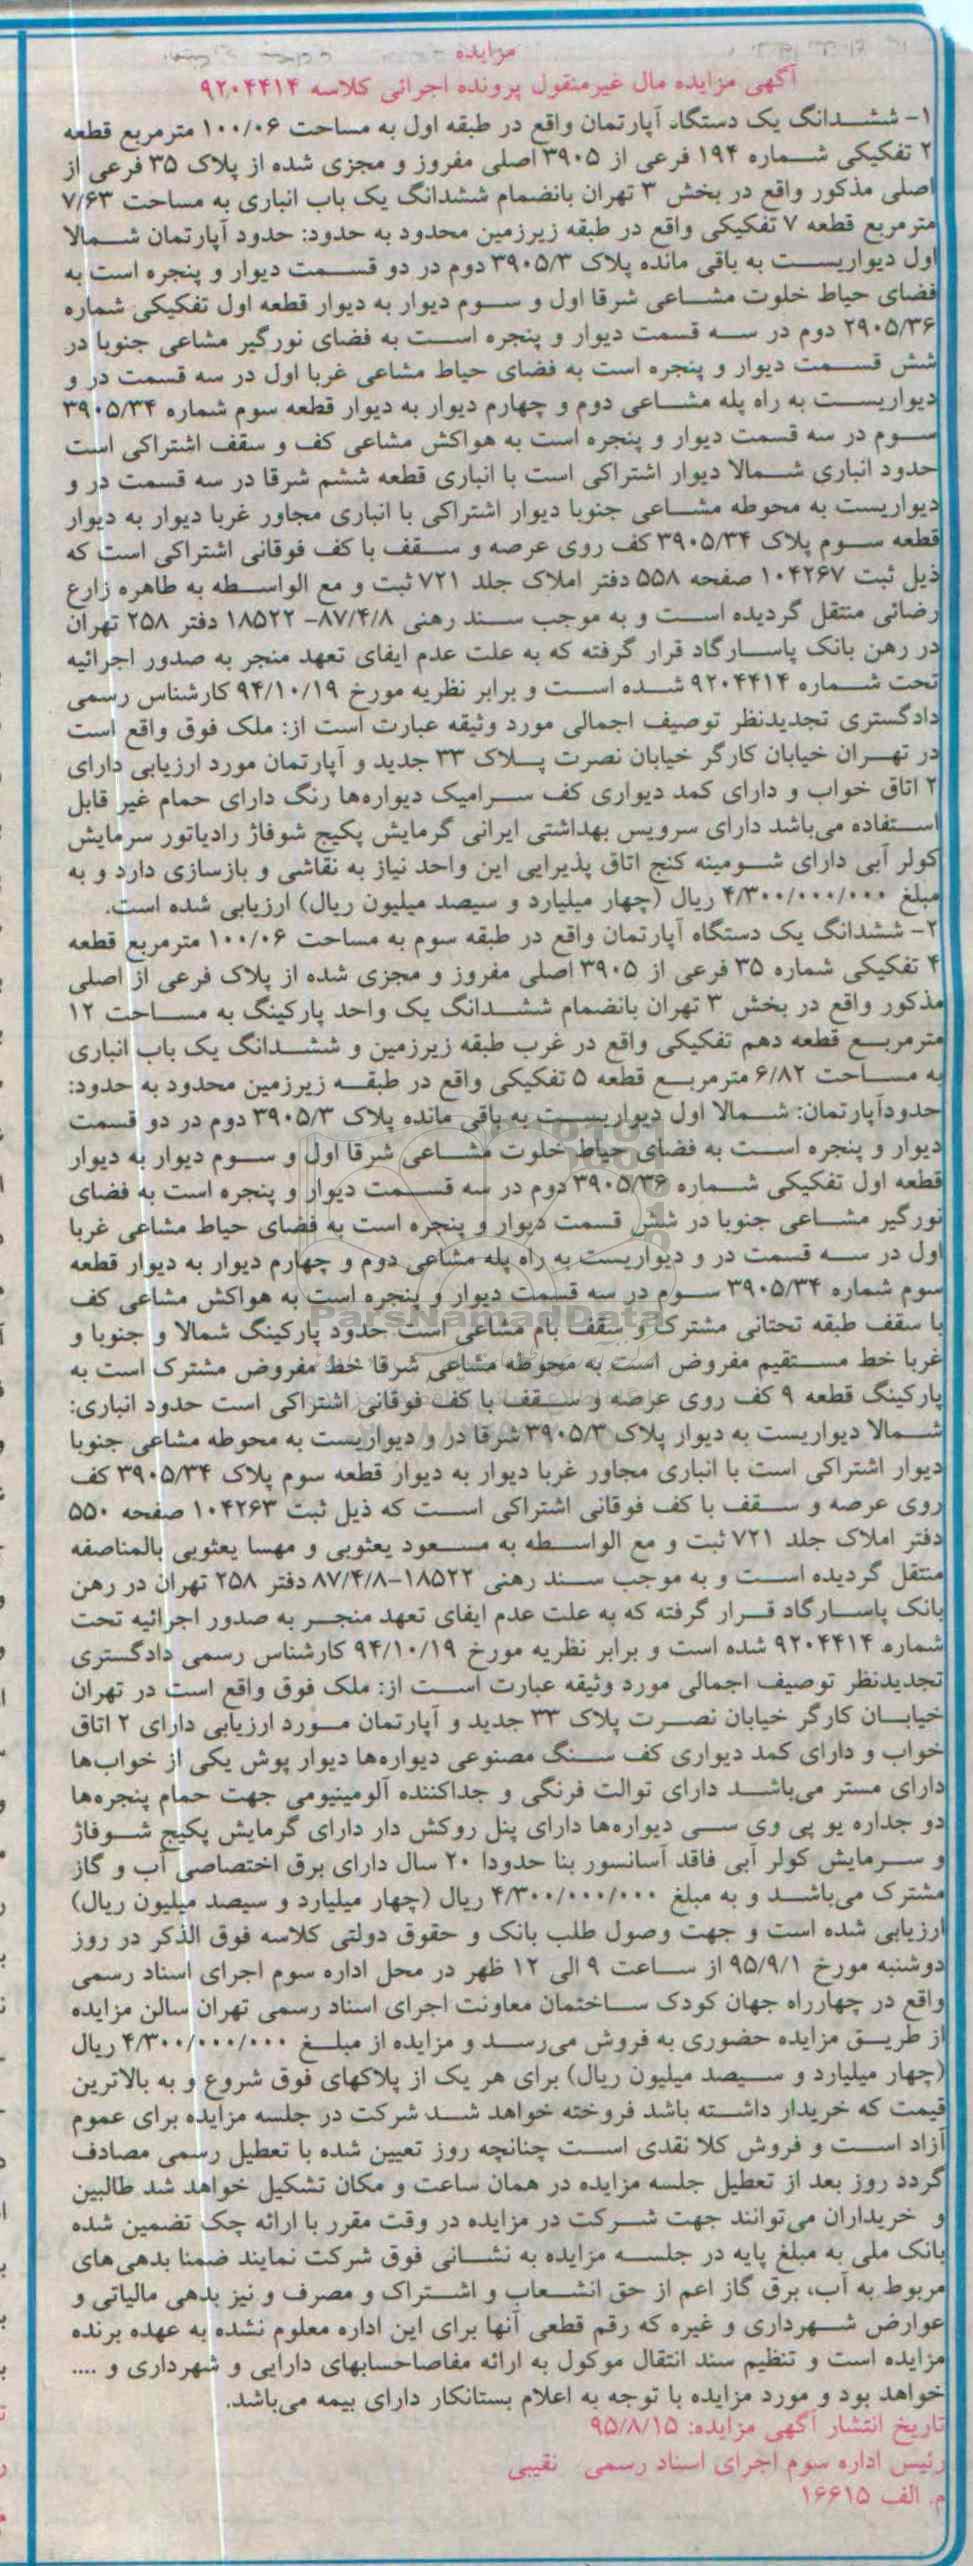 مزایده
آگهی مزایده مال غیرمنقول پرونده اجرائی کلاسه ۹۲۰۴۴۱۴
۱- ششدانگ یک دستگاه آپارتمان واقع در طبقه اول به مساحت ۱۰۰/۰۶ مترمربع قطعه
۲ تفکیکی شماره ۱۹۴ فرعی از ۳۹۰۵ اصلی مفروز و مجزی شده از پلاک ۳۵ فرعی از
اصلی مذکور واقع در بخش ۳ تهران بانضمام ششدانگ یک باب انباری به مساحت ۷/۶۳
مترمربع قطعه ۷ تفکیکی واقع در طبقه زیرزمین محدود به حدود: حدود آپارتمان شمالا
اول دیواریست به باقی مانده پلاک ۳۹۰۵/۳ دوم در دو قسمت دیوار و پنجره است به
فضای حیاط خلوت مشاعی شرقا اول و سوم دیوار به دیوار قطعه اول تفکیکی شماره
۲۹۰۵/۳۶ دوم در سه قسمت دیوار و پنجره است به فضای نورگیر مشاعی جنوبا در
شش قسمت دیوار و پنجره است به فضای حیاط مشاعی غربا اول در سه قسمت در و
دیواریست به راه پله مشاعی دوم و چهارم دیوار به دیوار قطعه سوم شماره ۳۹۰۵/۳۴
سوم در سه قسمت دیوار و پنجره است به هواکش مشاعی کف و سقف اشتراکی است
حدود انباری شمالا دیوار اشتراکی است با انباری قطعه ششم شرقا در سه قسمت در و
دیواریست به محوطه مشاعی جنوبا دیوار اشتراکی با انباری مجاور غربا دیوار به دیوار
قطعه سوم پلاک ۳۹۰۵/۳۴ کف روی عرصه و سقف با کف فوقانی اشتراکی است که
ذیل ثبت ۱۰۴۲۶۷ صفحه ۵۵۸ دفتر املاک جلد ۷۲۱ ثبت و مع الواسطه به طاهره زارع
رضائی منتقل گردیده است و به موجب سند رهنی ۸۷/۴/۸- ۱۸۵۲۲ دفتر ۲۵۸ تهران
در رهن بانک پاسارگاد قرار گرفته که به علت عدم ایفای تعهد منجر به صدور اجرائیه
تحت شماره ۹۲۰۴۴۱۴ شده است و برابر نظریه مورخ ۹۴/۱۰/۱۹ کارشناس رسمی
دادگستری تجدیدنظر توصیف اجمالی مورد وثیقه عبارت است از: ملک فوق واقع است
در تهران خیابان کارگر خیابان نصرت پلاک ۳۳ جدید و آپارتمان مورد ارزیابی دارای
۲ اتاق خواب و دارای کمد دیواری کف سرامیک دیواره‌ها رنگ دارای حمام غیر قابل
استفاده می‌باشد دارای سرویس بهداشتی ایرانی گرمایش پکیج شوفاژ رادیاتور سرمایش
کولر آبی دارای شومینه کنج اتاق پذیرایی این واحد نیاز به نقاشی و بازسازی دارد و به
مبلغ ۴/۳۰۰/۰۰۰/۰۰۰ ریال (چهار میلیارد و سیصد میلیون ریال) ارزیابی شده است.
۲- ششدانگ یک دستگاه آپارتمان واقع در طبقه سوم به مساحت ۱۰۰/۰۶ مترمربع قطعه
۴ تفکیکی شماره ۳۵ فرعی از ۳۹۰۵ اصلی مفروز و مجزی شده از پلاک فرعی از اصلی
مذکور واقع در بخش ۳ تهران بانضمام ششدانگ یک واحد پارکینگ به مساحت ۱۲
مترمربع قطعه دهم تفکیکی واقع در غرب طبقه زیرزمین و ششدانگ یک باب انباری
به مساحت ۶/۸۲ مترمربع قطعه ۵ تفکیکی واقع در طبقه زیرزمین محدود به حدود:
حدودآپارتمان: شمالا اول دیواریست به باقی مانده پلاک ۳۹۰۵/۳ دوم در دو قسمت
دیوار و پنجره است به فضای حیاط خلوت مشاعی شرقا اول و سوم دیوار به دیوار
قطعه اول تفکیکی شماره ۳۹۰۵/۳۶ دوم در سه قسمت دیوار و پنجره است به فضای
نورگیر مشاعی جنوبا در شش قسمت دیوار و پنجره است به فضای حیاط مشاعی غربا
اول در سه قسمت در و دیواریست به راه پله مشاعی دوم و چهارم دیوار به دیوار قطعه
سوم شماره ۳۹۰۵/۳۴ سوم در سه قسمت دیوار و پنجره است به هواکش مشاعی کف
با سقف طبقه تحتانی مشترک و سقف بام مشاعی است حدود پارکینگ شمالا و جنوبا و
غربا خط مستقیم مفروض است به محوطه مشاعی شرقا خط مفروض مشترک است به
پارکینگ قطعه ۹ کف روی عرصه و سقف با کف فوقانی اشتراکی است حدود انباری:
شمالا دیواریست به دیوار پلاک ۳۹۰۵/۳ شرقا در و دیواریست به محوطه مشاعی جنوبا
دیوار اشتراکی است با انباری مجاور غربا دیوار به دیوار قطعه سوم پلاک ۳۹۰۵/۳۴ کف
روی عرصه و سقف با کف فوقانی اشتراکی است که ذیل ثبت ۱۰۴۲۶۳ صفحه ۵۵۰
دفتر املاک جلد ۷۲۱ ثبت و مع الواسطه به مسعود یعثوبی و مهسا یعثوبی بالمناصفه
منتقل گردیده است و به موجب سند رهنی ۱۸۵۲۲-۸۷/۴/۸ دفتر ۲۵۸ تهران در رهن
بانک پاسارگاد قرار گرفته که به علت عدم ایفای تعهد منجر به صدور اجرائیه تحت
شماره ۹۲۰۴۴۱۴ شده است و برابر نظریه مورخ ۹۴/۱۰/۱۹ کارشناس رسمی دادگستری
تجدیدنظر توصیف اجمالی مورد وثیقه عبارت است از: ملک فوق واقع است در تهران
خیابان کارگر خیابان نصرت پلاک ۳۳ جدید و آپارتمان مورد ارزیابی دارای ۲ اتاق
خواب و دارای کمد دیواری کف سنگ مصنوعی دیواره‌ها دیوار پوش یکی از خواب‌ها
دارای مستر می‌باشد دارای توالت فرنگی و جداکننده آلومینیومی جهت حمام پنجره‌ها
دو جداره یو پی وی سی دیواره‌ها دارای پنل روکش دار دارای گرمایش پکیج شوفاژ
و سرمایش کولر آبی فاقد آسانسور بنا حدودا ۲۰ سال دارای برق اختصاصی آب و گاز
مشترک می‌باشد و به مبلغ ۴/۳۰۰/۰۰۰/۰۰۰ ریال (چهار میلیارد و سیصد میلیون ریال)
ارزیابی شده است و جهت وصول طلب بانک و حقوق دولتی کلاسه فوق الذکر در روز
دوشنبه مورخ ۹۵/۹/۱ از ساعت ۹ الی ۱۲ ظهر در محل اداره سوم اجرای اسناد رسمی
واقع در چهارراه جهان کودک ساختمان معاونت اجرای اسناد رسمی تهران سالن مزایده
از طریق مزایده حضوری به فروش می‌رسد و مزایده از مبلغ ۴/۳۰۰/۰۰۰/۰۰۰ ریال
(چهار میلیارد و سیصد میلیون ریال) برای هر یک از پلاکهای فوق شروع و به بالاترین
قیمت که خریدار داشته باشد فروخته خواهد شد شرکت در جلسه مزایده برای عموم
آزاد است و فروش کلا نقدی است چنانچه روز تعیین شده با تعطیل رسمی مصادف
گردد روز بعد از تعطیل جلسه مزایده در همان ساعت و مکان تشکیل خواهد شد طالبین
و خریداران می‌توانند جهت شرکت در مزایده در وقت مقرر با ارائه چک تضمین شده
بانک ملی به مبلغ پایه در جلسه مزایده به نشانی فوق شرکت نمایند ضمنا بدهی‌های
مربوط به آب، برق گاز اعم از حق انشعاب و اشتراک و مصرف و نیز بدهی مالیاتی و
عوارض شهرداری و غیره که رقم قطعی آنها برای این اداره معلوم نشده به عهده برنده
مزایده است و تنظیم سند انتقال موکول به ارائه مفاصاحسابهای دارایی و شهرداری و ....
خواهد بود و مورد مزایده با توجه به اعلام بستانکار دارای بیمه می‌باشد.
تاریخ انتشار آگهی مزایده: ۹۵/۸/۱۵
رئیس اداره سوم اجرای اسناد رسمی نقیبی
م. الف ۱۶۶۱۵
ParsNamadData